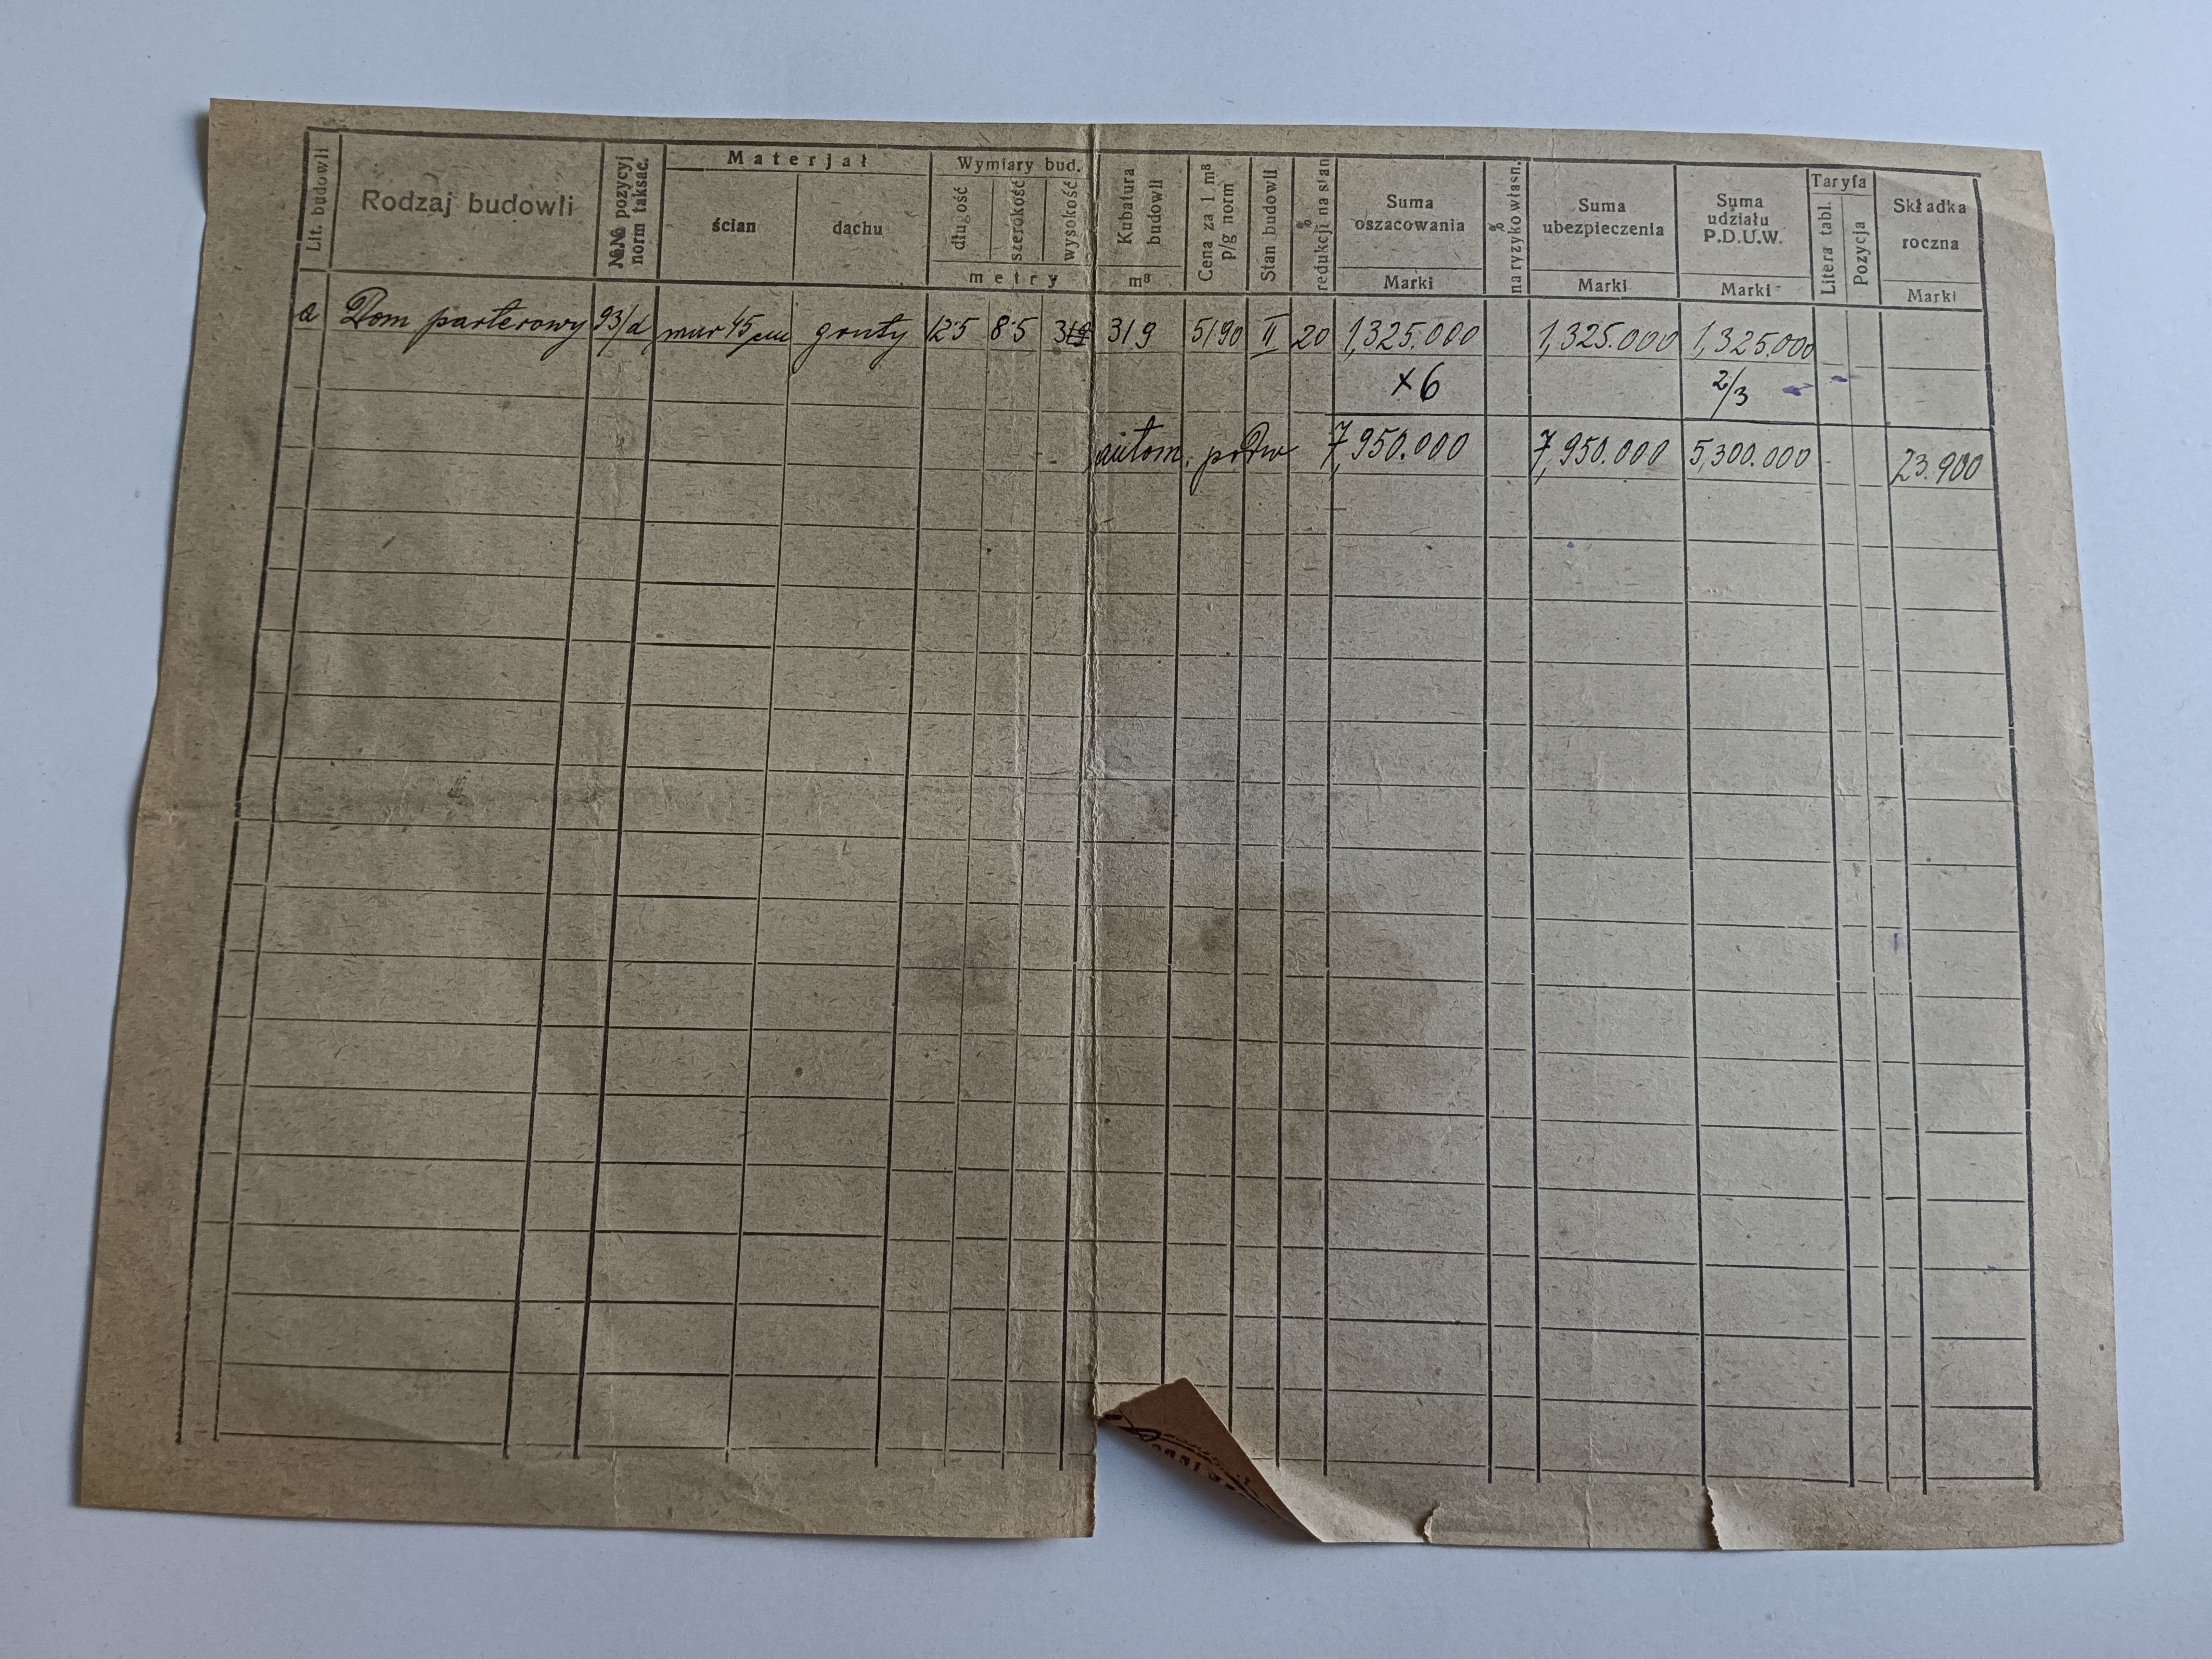 Lit. budowli
Rodzaj budowli
№№ pozycyj norm taksac.
Materjał
ścian
dachu
Wymiary bud.
długość
szerokość
wysokość
metry
Kubatura budowli
m³
Cena za 1 m³ p/g norm
Stan budowli
% redukcji na stan
Suma oszacowania
Marki
% na ryzyko własn.
Suma ubezpieczenia
Marki
Suma udziału P.D.U.W.
Marki
Taryfa
Litera tabl.
Pozycja
Składka roczna
Marki
a Dom parterowy 93/d mur 45 cm 12·5 8·5 3 319 5190 II 20 1,325.000 1,325.000 1,325.000
×6 2/3
autom. podw 7,950.000 7,950.000 5,300.000 23.900